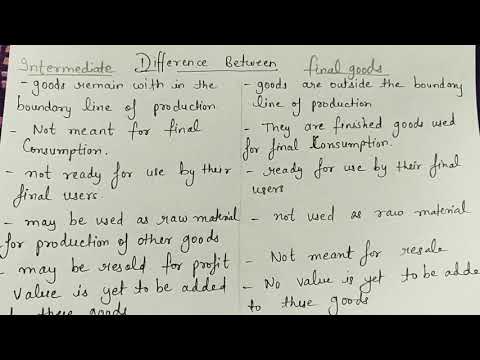 Difference Between
Intermediate
- goods remain with in the
boundary line of production
- Not meant for final
Consumption.
- not ready for use by their
final users.
- may be used as raw material
for production of other goods
- may be resold for profit
Value is yet to be added
to these goods
final goods
- goods are outside the boundary
line of production
- They are finished goods used
for final Consumption.
- ready for use by their final
users
- not used as raw material
- Not meant for resale
- No value is yet to be added
to these goods